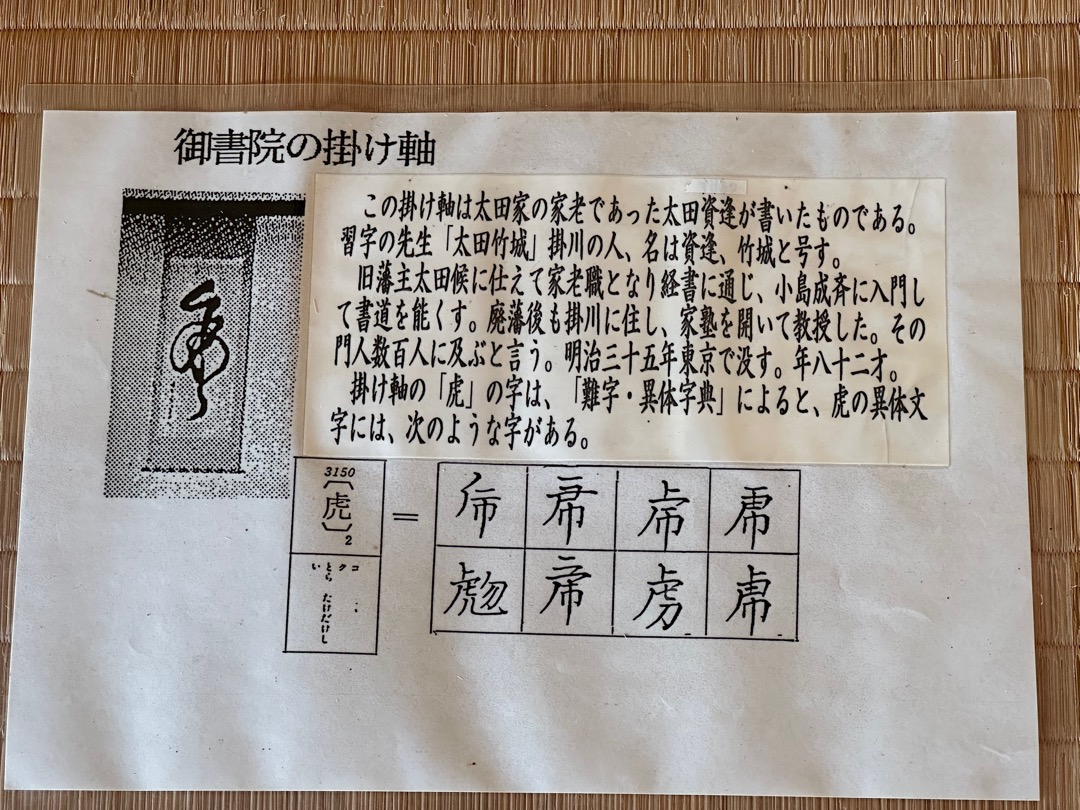 御書院の掛け軸
この掛け軸は太田家の家老であった太田資逢が書いたものである。
習字の先生「太田竹城」掛川の人、名は資逢、竹城と号す。
旧藩主太田候に仕えて家老職となり経書に通じ、小島成斉に入門し
て書道を能くす。廃藩後も掛川に住し、家塾を開いて教授した。その
門人数百人に及ぶと言う。明治三十五年東京で没す。年八十二才。
掛け軸の「虎」の字は、「難字・異体字典」によると、虎の異体文
字には、次のような字がある。
3150
〔虎〕2
=
コ
ク
とら たけだけし
い